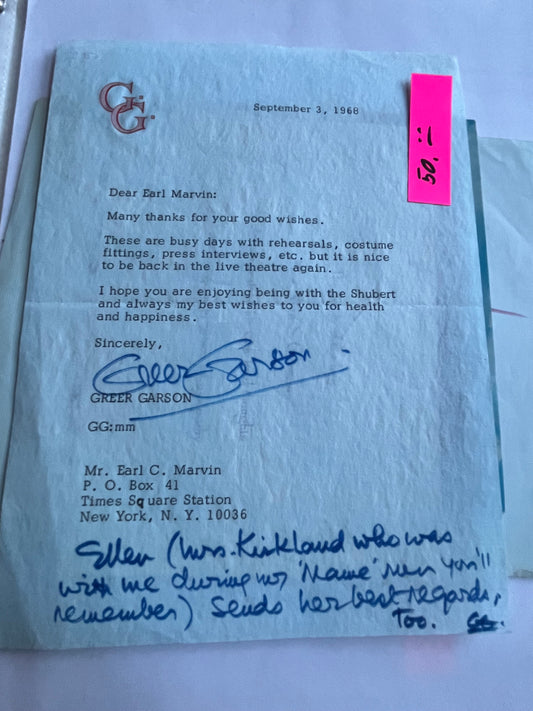 G.G.
September 3, 1968
50.--
Dear Earl Marvin:
Many thanks for your good wishes.
These are busy days with rehearsals, costume
fittings, press interviews, etc. but it is nice
to be back in the live theatre again.
I hope you are enjoying being with the Shubert
and always my best wishes to you for health
and happiness.
Sincerely,
Greer Garson
GREER GARSON
GG:mm
Mr. Earl C. Marvin
P. O. Box 41
Times Square Station
New York, N. Y. 10036
Ellen (Mrs. Kirkland who was
with me during my 'Mame' run you'll
remember) sends her best regards,
Too. GG.